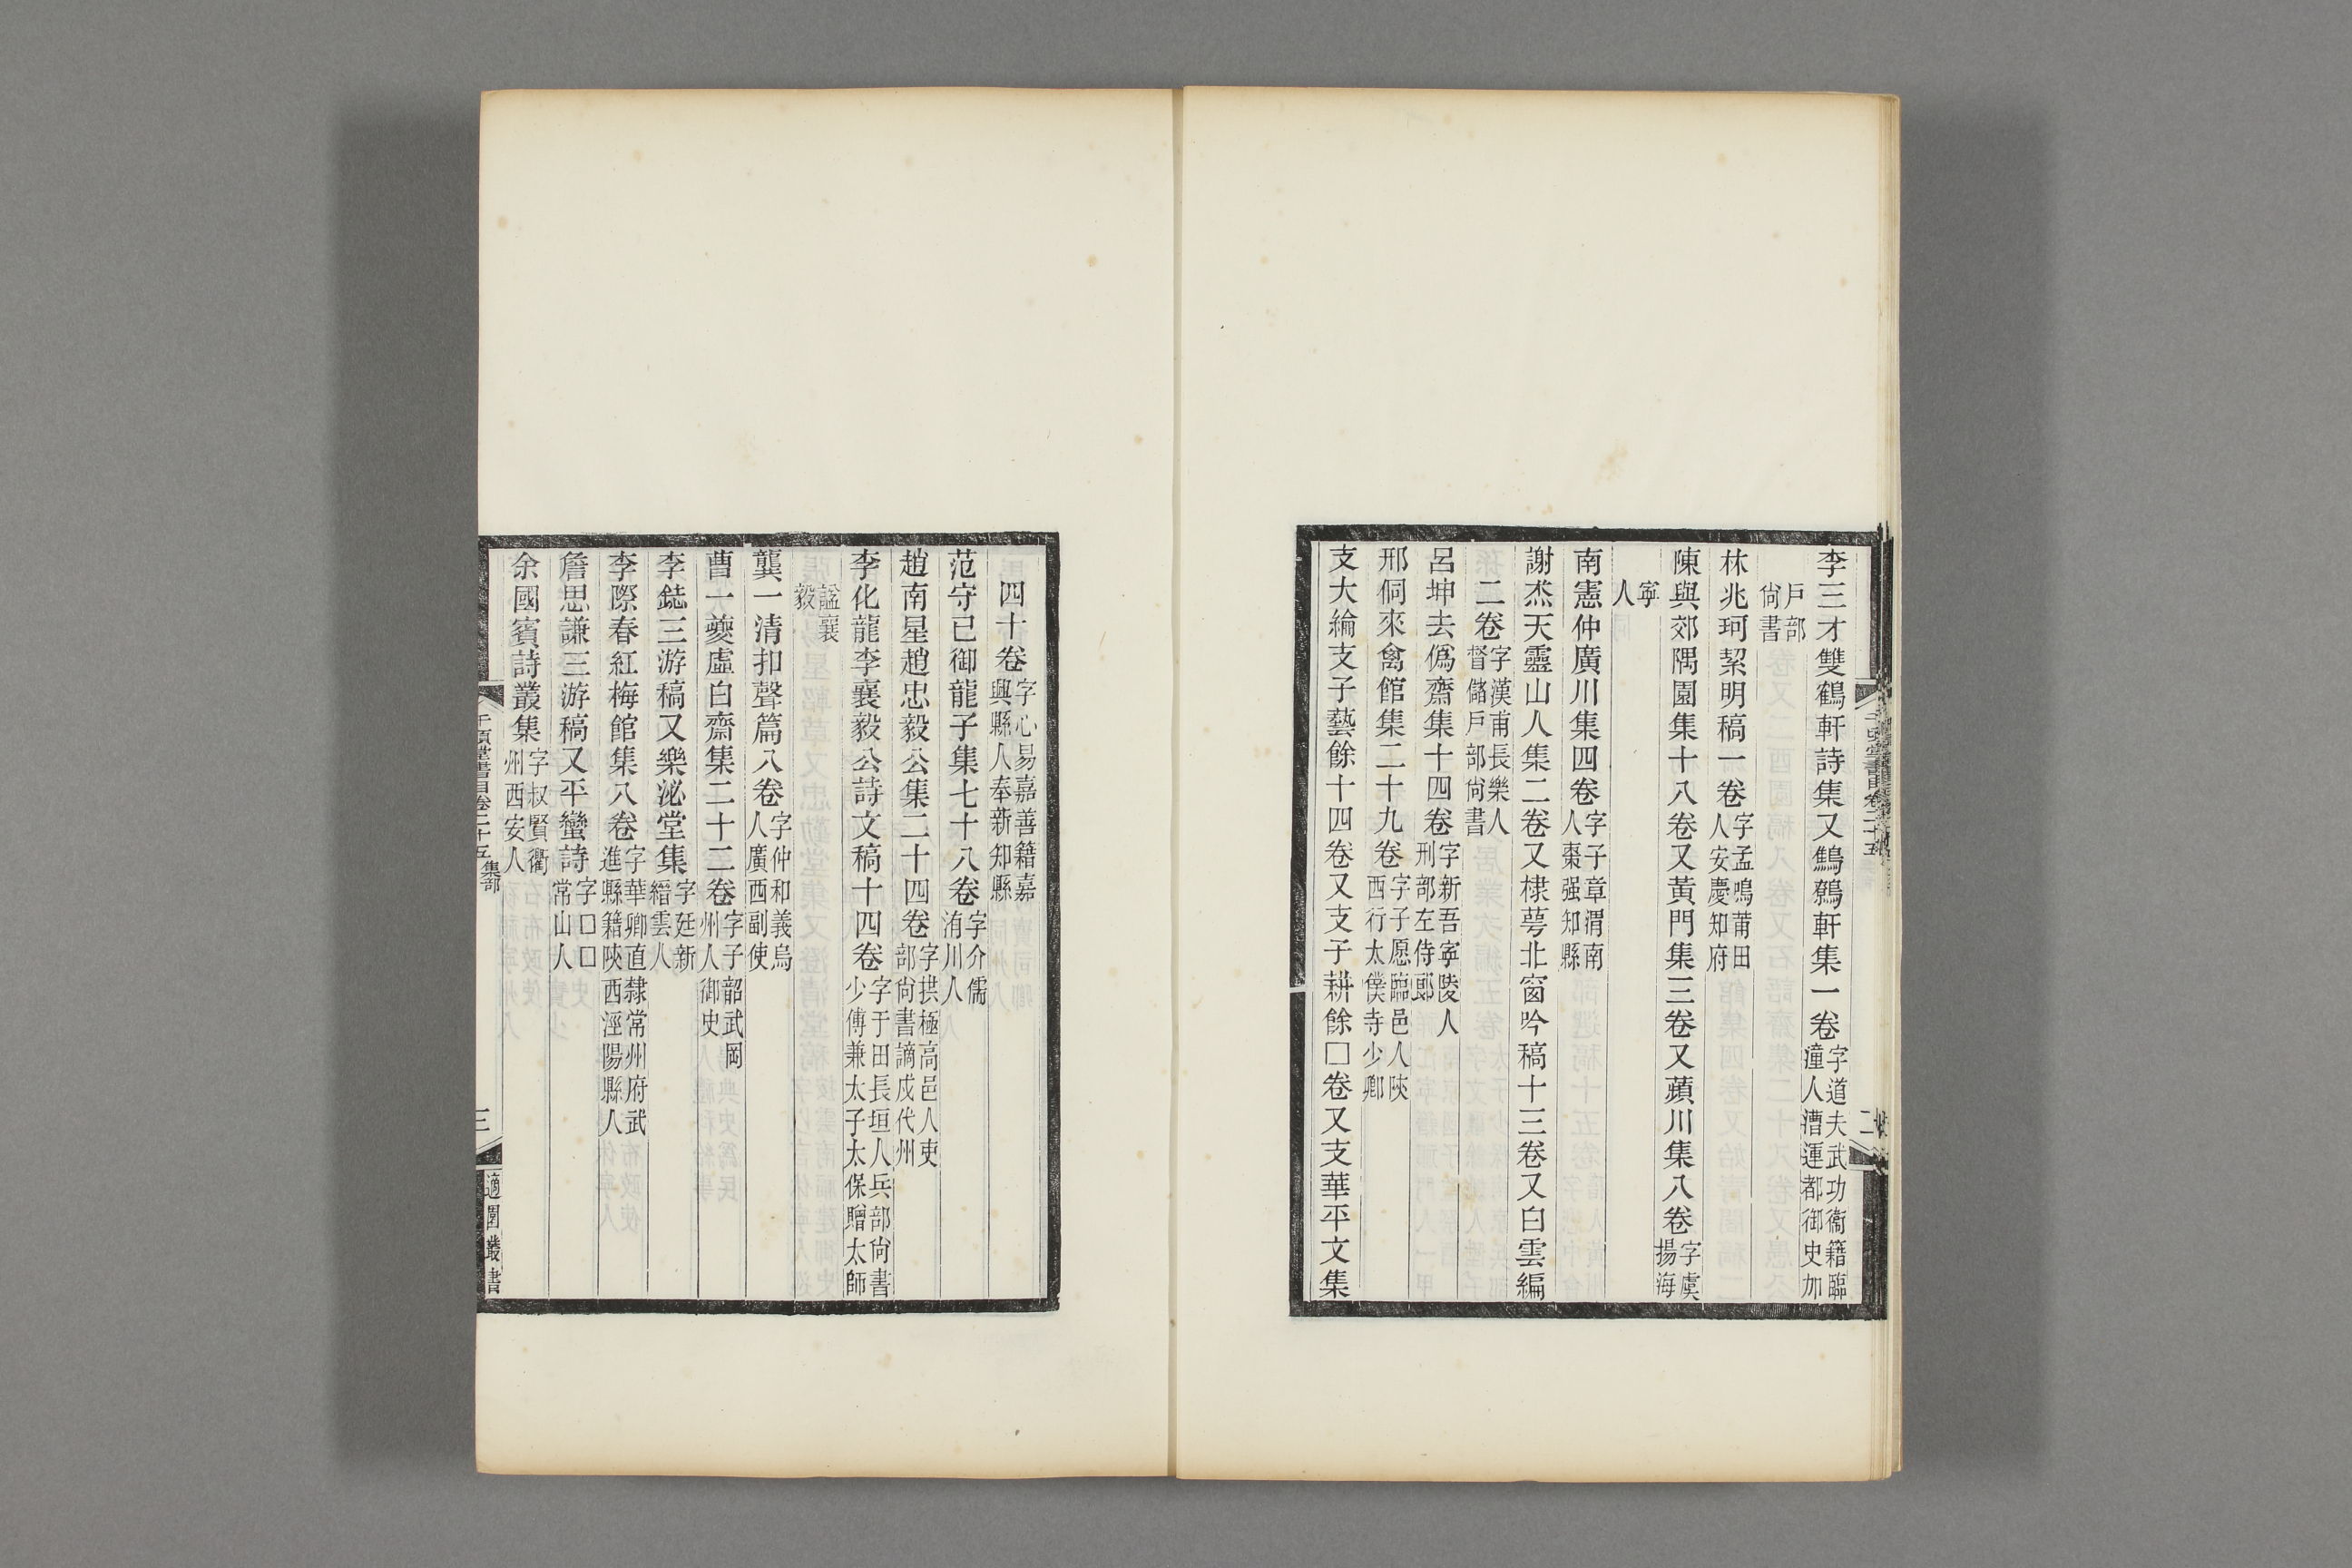 李三才雙鶴軒詩集又鷦鷯軒集一卷字道夫武功衞籍臨潼人漕運都御史加
戶部尙書
林兆珂挈明稿一卷字孟鳴莆田人安慶知府
陳與郊隅園集十八卷又黃門集三卷又蘋川集八卷字虞揚海
寜人
南憲仲廣川集四卷字子章渭南人棗强知縣
謝杰天靈山人集二卷又棣萼北窗吟稿十三卷又白雲編
二卷字漢甫長樂人督儲戶部尙書
呂坤去僞齋集十四卷字新吾寜陵人刑部左侍郞
邢侗來禽館集二十九卷字子愿臨邑人陝西行太僕寺少卿
支大綸支子藝餘十四卷又支子耕餘□卷又支華平文集
四十卷字心易嘉善籍嘉興縣人奉新知縣
范守己御龍子集七十八卷字介儒洧川人
趙南星趙忠毅公集二十四卷字拱極高邑人吏部尙書謫戍代州
李化龍李襄毅公詩文稿十四卷字于田長垣人兵部尙書少傅兼太子太保贈太師
諡襄毅
龔一清扣聲篇八卷字仲和義烏人廣西副使
曹一夔虛白齋集二十二卷字子韶武岡州人御史
李鋕三游稿又樂泌堂集字廷新縉雲人
李際春紅梅館集八卷字華卿直隸常州府武進縣籍陝西涇陽縣人
詹思謙三游稿又平蠻詩字□□常山人
余國賓詩叢集字叔賢衢州西安人
千頃堂書目卷二十五 集部
三
適園叢書